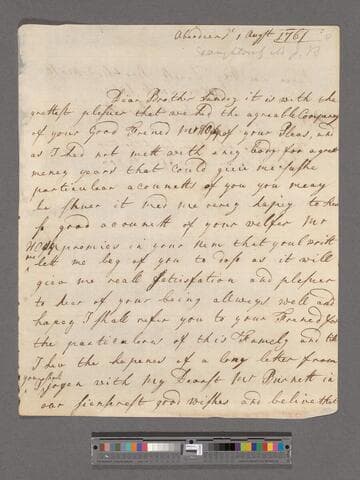 Aberdeen 1 Augst 1761
Dear Brother Sandey it is with the
grettest plesuer that we had the agreable Company
of your Good Frend Mr of your Pleas, and
as I had not mett with aney body for a great
meney years that Could give me sushe
particulear acounetts of you you meay
be shuer it med me verey hapey to hear
so good acounett of your welfer Mr
promies in your nem that you'l writt
me let me beg of you to doss as it will
give me reall setisfation and plesuer
to heer of your being allways well and
hapey I shall refer you to your Frened for
the particulars of this Fameley and till
I hev the hapenes of a long letter from
you shall
I joyen with My Dearst Mr Burnett in
our sienserest good wishes and belive that